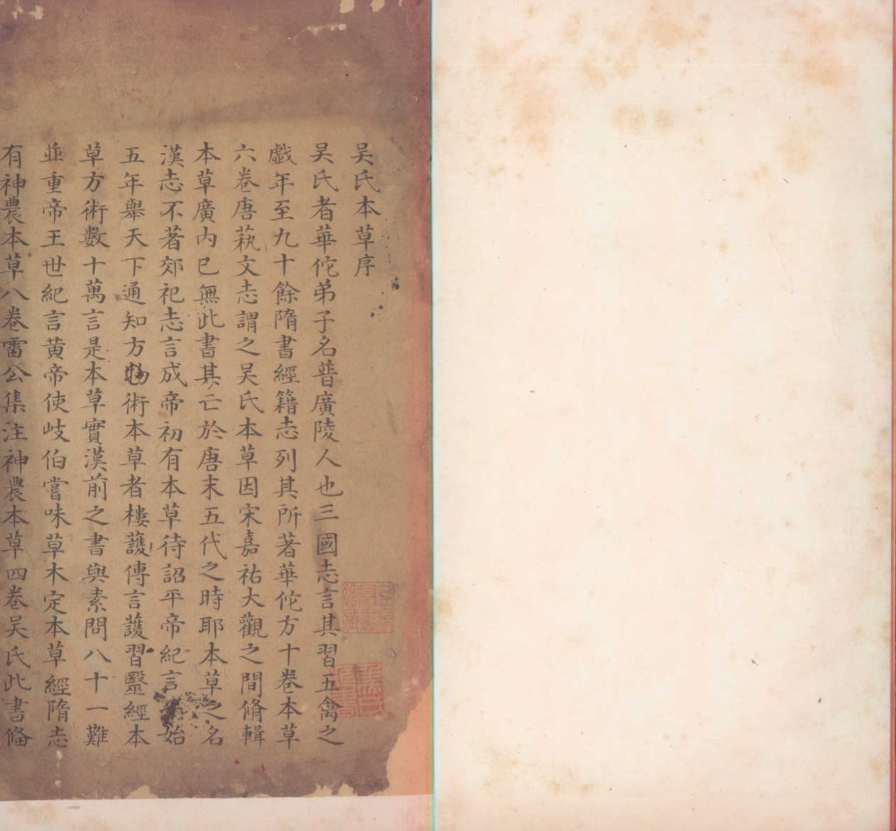 吴氏本草序
吴氏者華佗弟子名普廣陵人也三國志言其習五禽之
戲年至九十餘隋書經籍志列其所著華佗方十卷本草
六卷唐藝文志謂之吴氏本草因宋嘉祐大觀之間脩輯
本草廣内已無此書其亡於唐末五代之時耶本草之名
漢志不著郊祀志言成帝初有本草待詔平帝紀言始
五年舉天下通知方術本草者樓護傳言護習醫經本
草方術數十萬言是本草實漢前之書與素問八十一難
並重帝王世紀言黄帝使岐伯嘗味草木定本草經隋志
有神農本草八卷雷公集注神農本草四卷吴氏此書俻